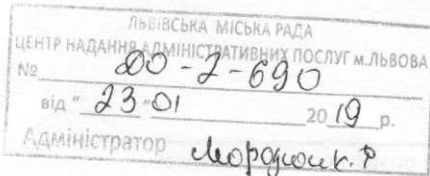 ЛЬВІВСЬКА МІСЬКА РАДА
ЦЕНТР НАДАННЯ АДМІНІСТРАТИВНИХ ПОСЛУГ м.ЛЬВОВА
№ ДО-2-690
від " 23 " 01 2019 р.
Адміністратор